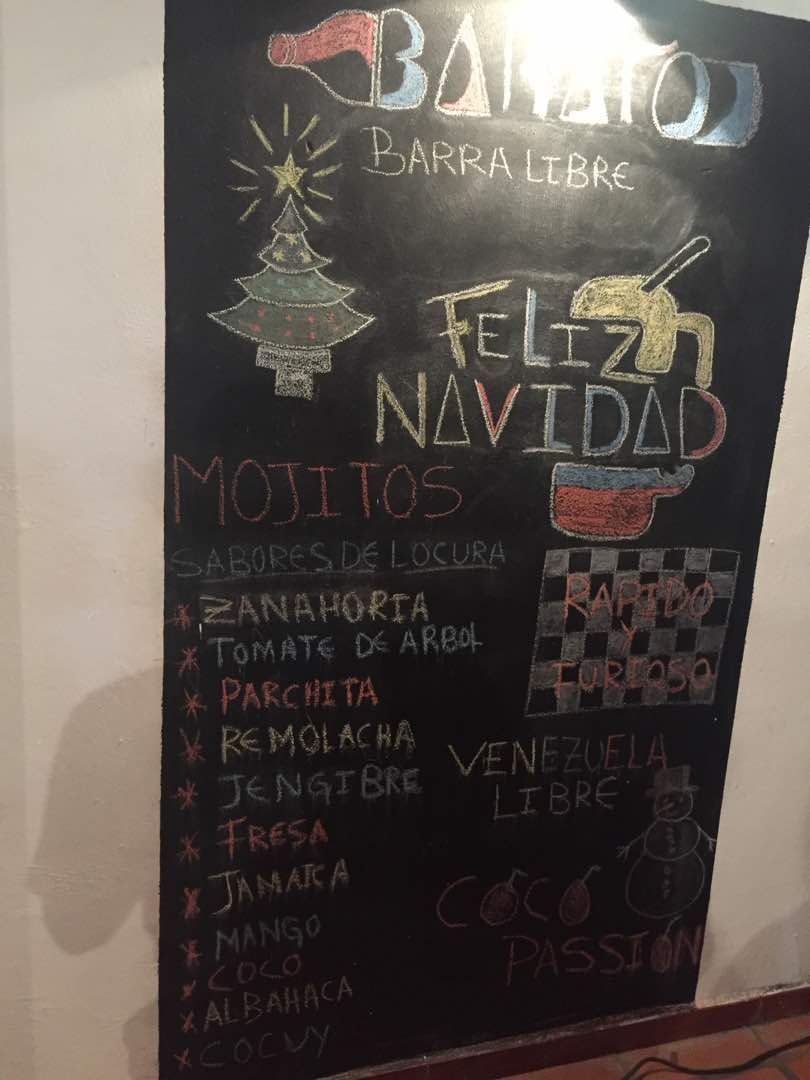 BARRA LIBRE
FELIZ
NAVIDAD
MOJITOS
SABORES DE LOCURA
* ZANAHORIA
* TOMATE DE ARBOL
* PARCHITA
* REMOLACHA
* JENGIBRE
* FRESA
* JAMAICA
* MANGO
* COCO
* ALBAHACA
* COCUY
RAPIDO
Y
FURIOSO
VENEZUELA
LIBRE
COCO
PASSIÓN